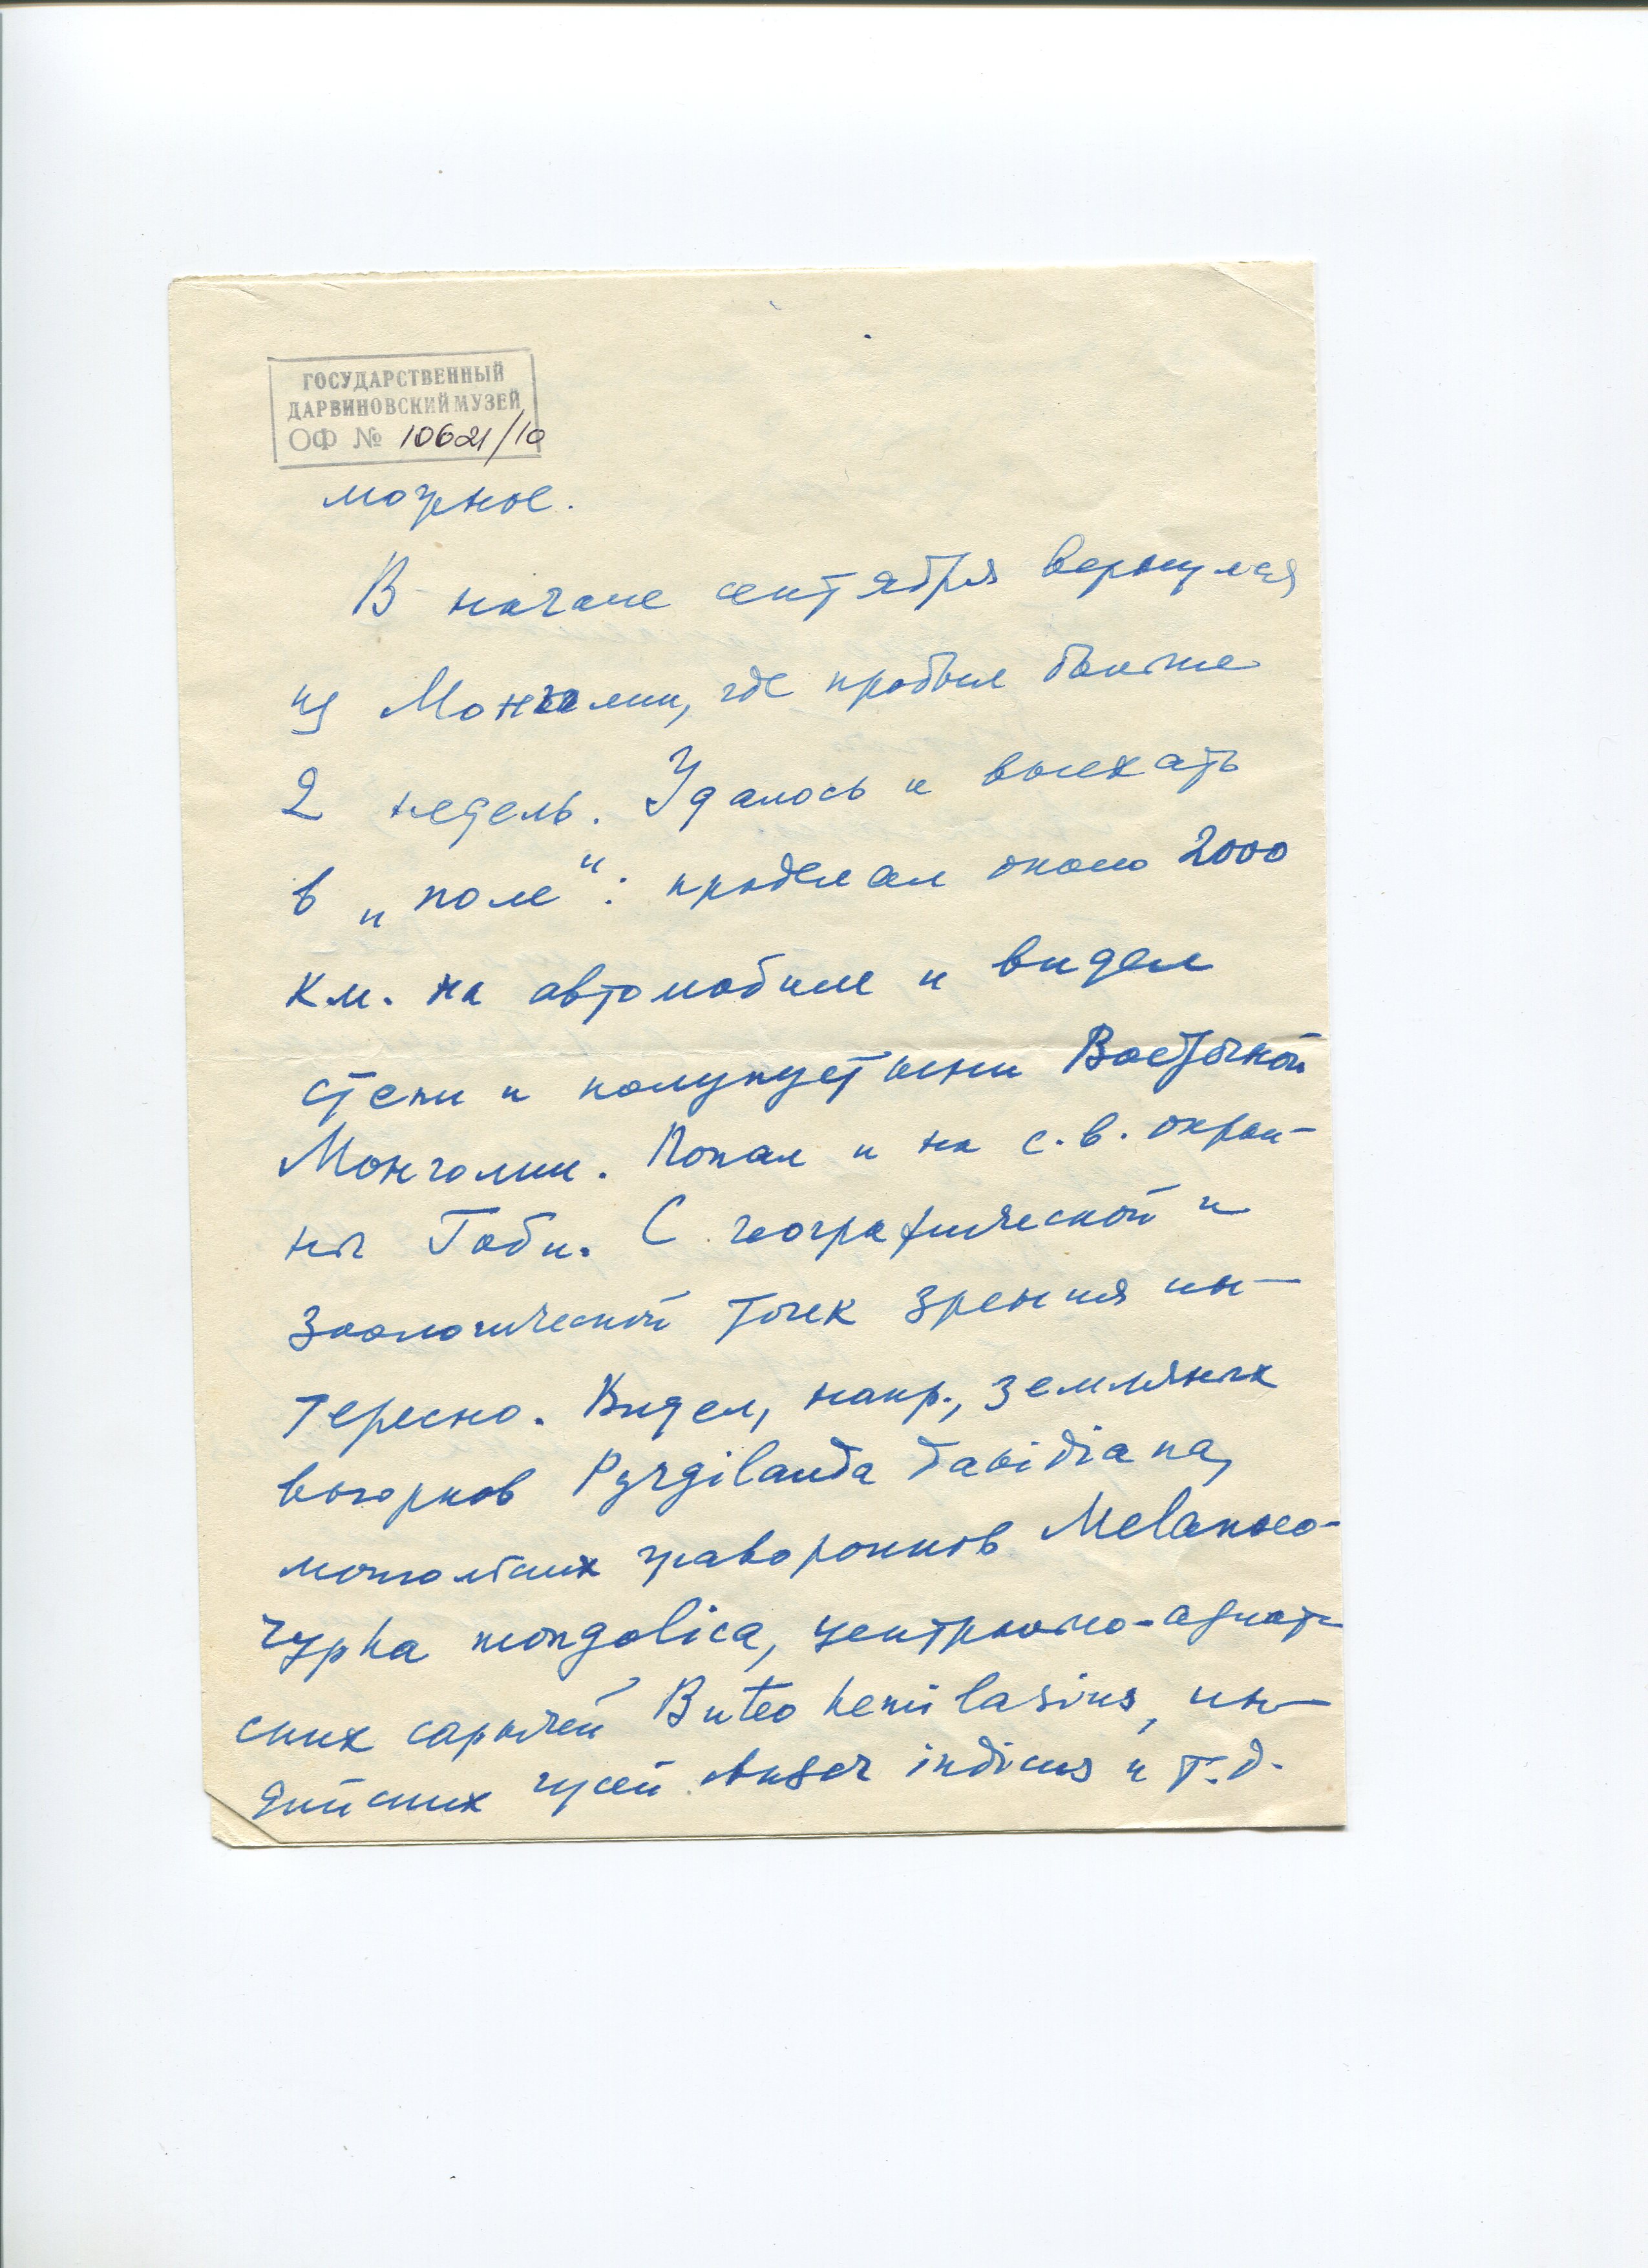 ГОСУДАРСТВЕННЫЙ
ДАРВИНОВСКИЙ МУЗЕЙ
ОФ № 10621/10
можное.
В начале сентября вернулся
из Монголии, где пробыл больше
2 недель. Удалось и выехать
в „поле“: проделал около 2000
км. на автомобиле и видел
степи и полупустыни Восточной
Монголии. Попал и на с.в. окраи-
ны Гоби. С географической и
зоологической точек зрения ин-
тересно. Видел, напр., земляных
вьюрков Pyrgilauda davidiana,
монгольских жаворонков Melanoco-
rypha mongolica, центрально-азиат-
ских сарычей Buteo hemilasius, ин-
дийских гусей Anser indicus и т.д.